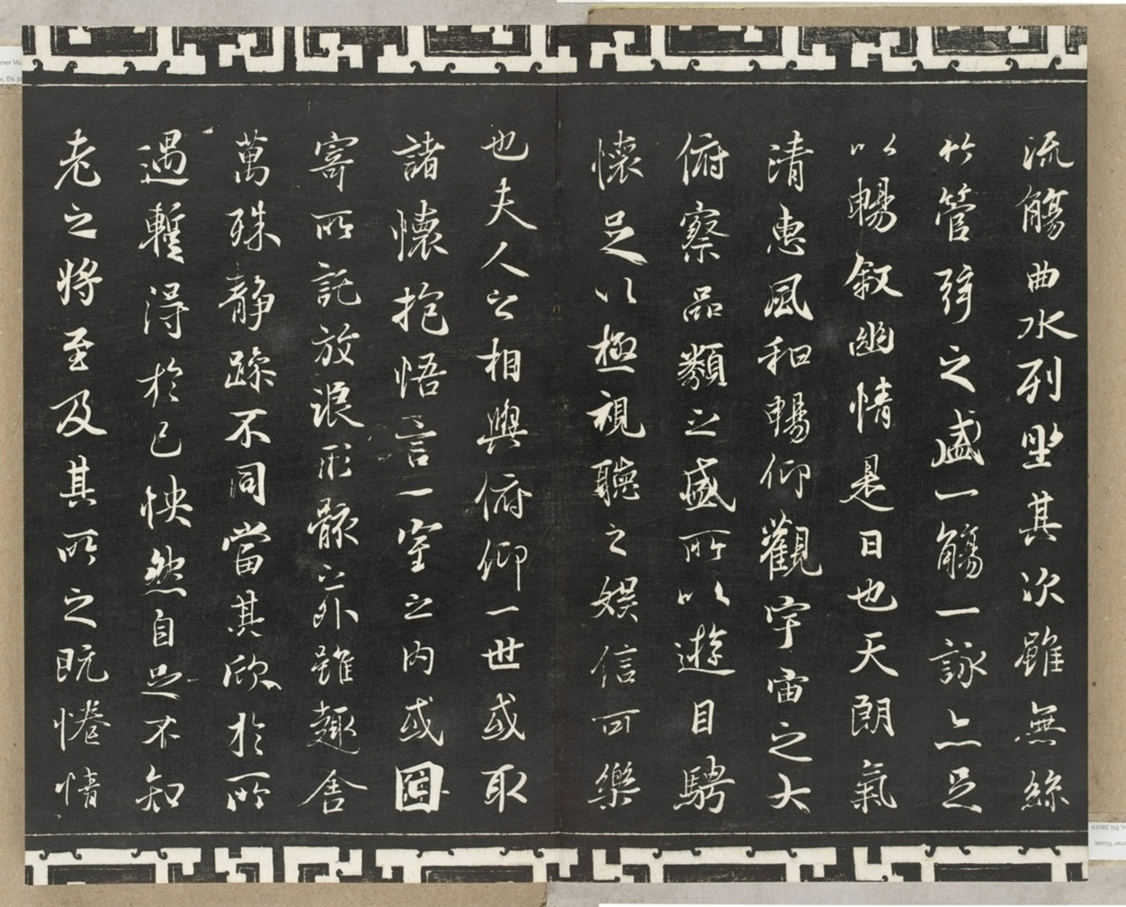 流觴曲水列坐其次雖無絲
竹管弦之盛一觴一詠亦足
以暢敘幽情是日也天朗氣
清惠風和暢仰觀宇宙之大
俯察品類之盛所以遊目騁
懷足以極視聽之娛信可樂
也夫人之相與俯仰一世或取
諸懷抱悟言一室之內或因
寄所託放浪形骸之外雖趣舍
萬殊靜躁不同當其欣於所
遇暫得於己怏然自足不知
老之將至及其所之既惓情